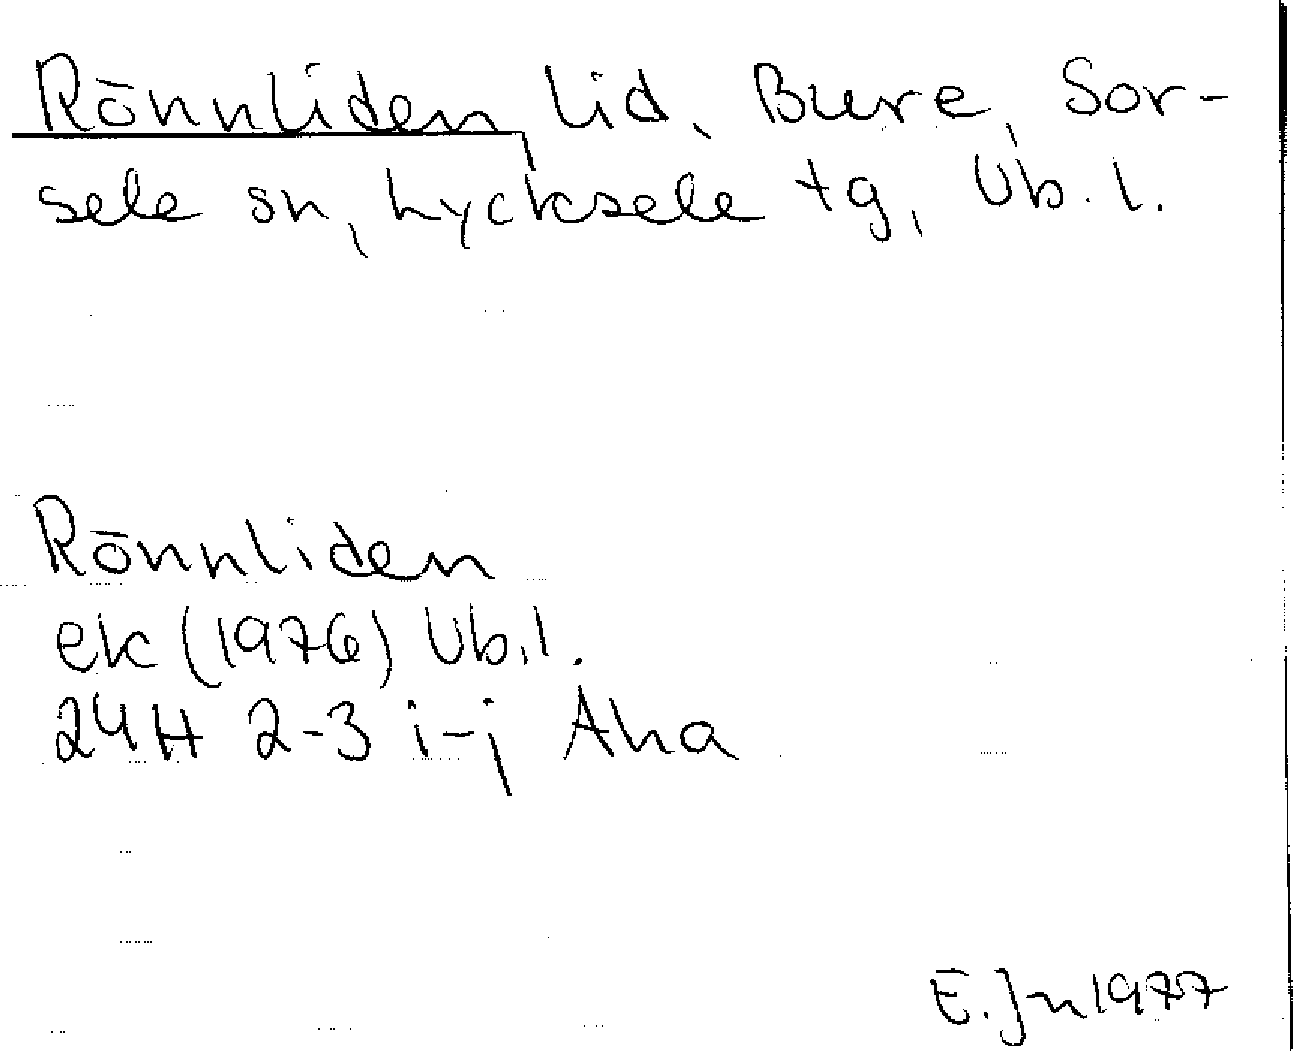 Rönnliden lid, Bure, Sor-
sele sn, Lycksele tg, Vb. l.
Rönnliden
ek (1976) Vb. l.
24H 2-3 i-j Äha
E. Jn 1977